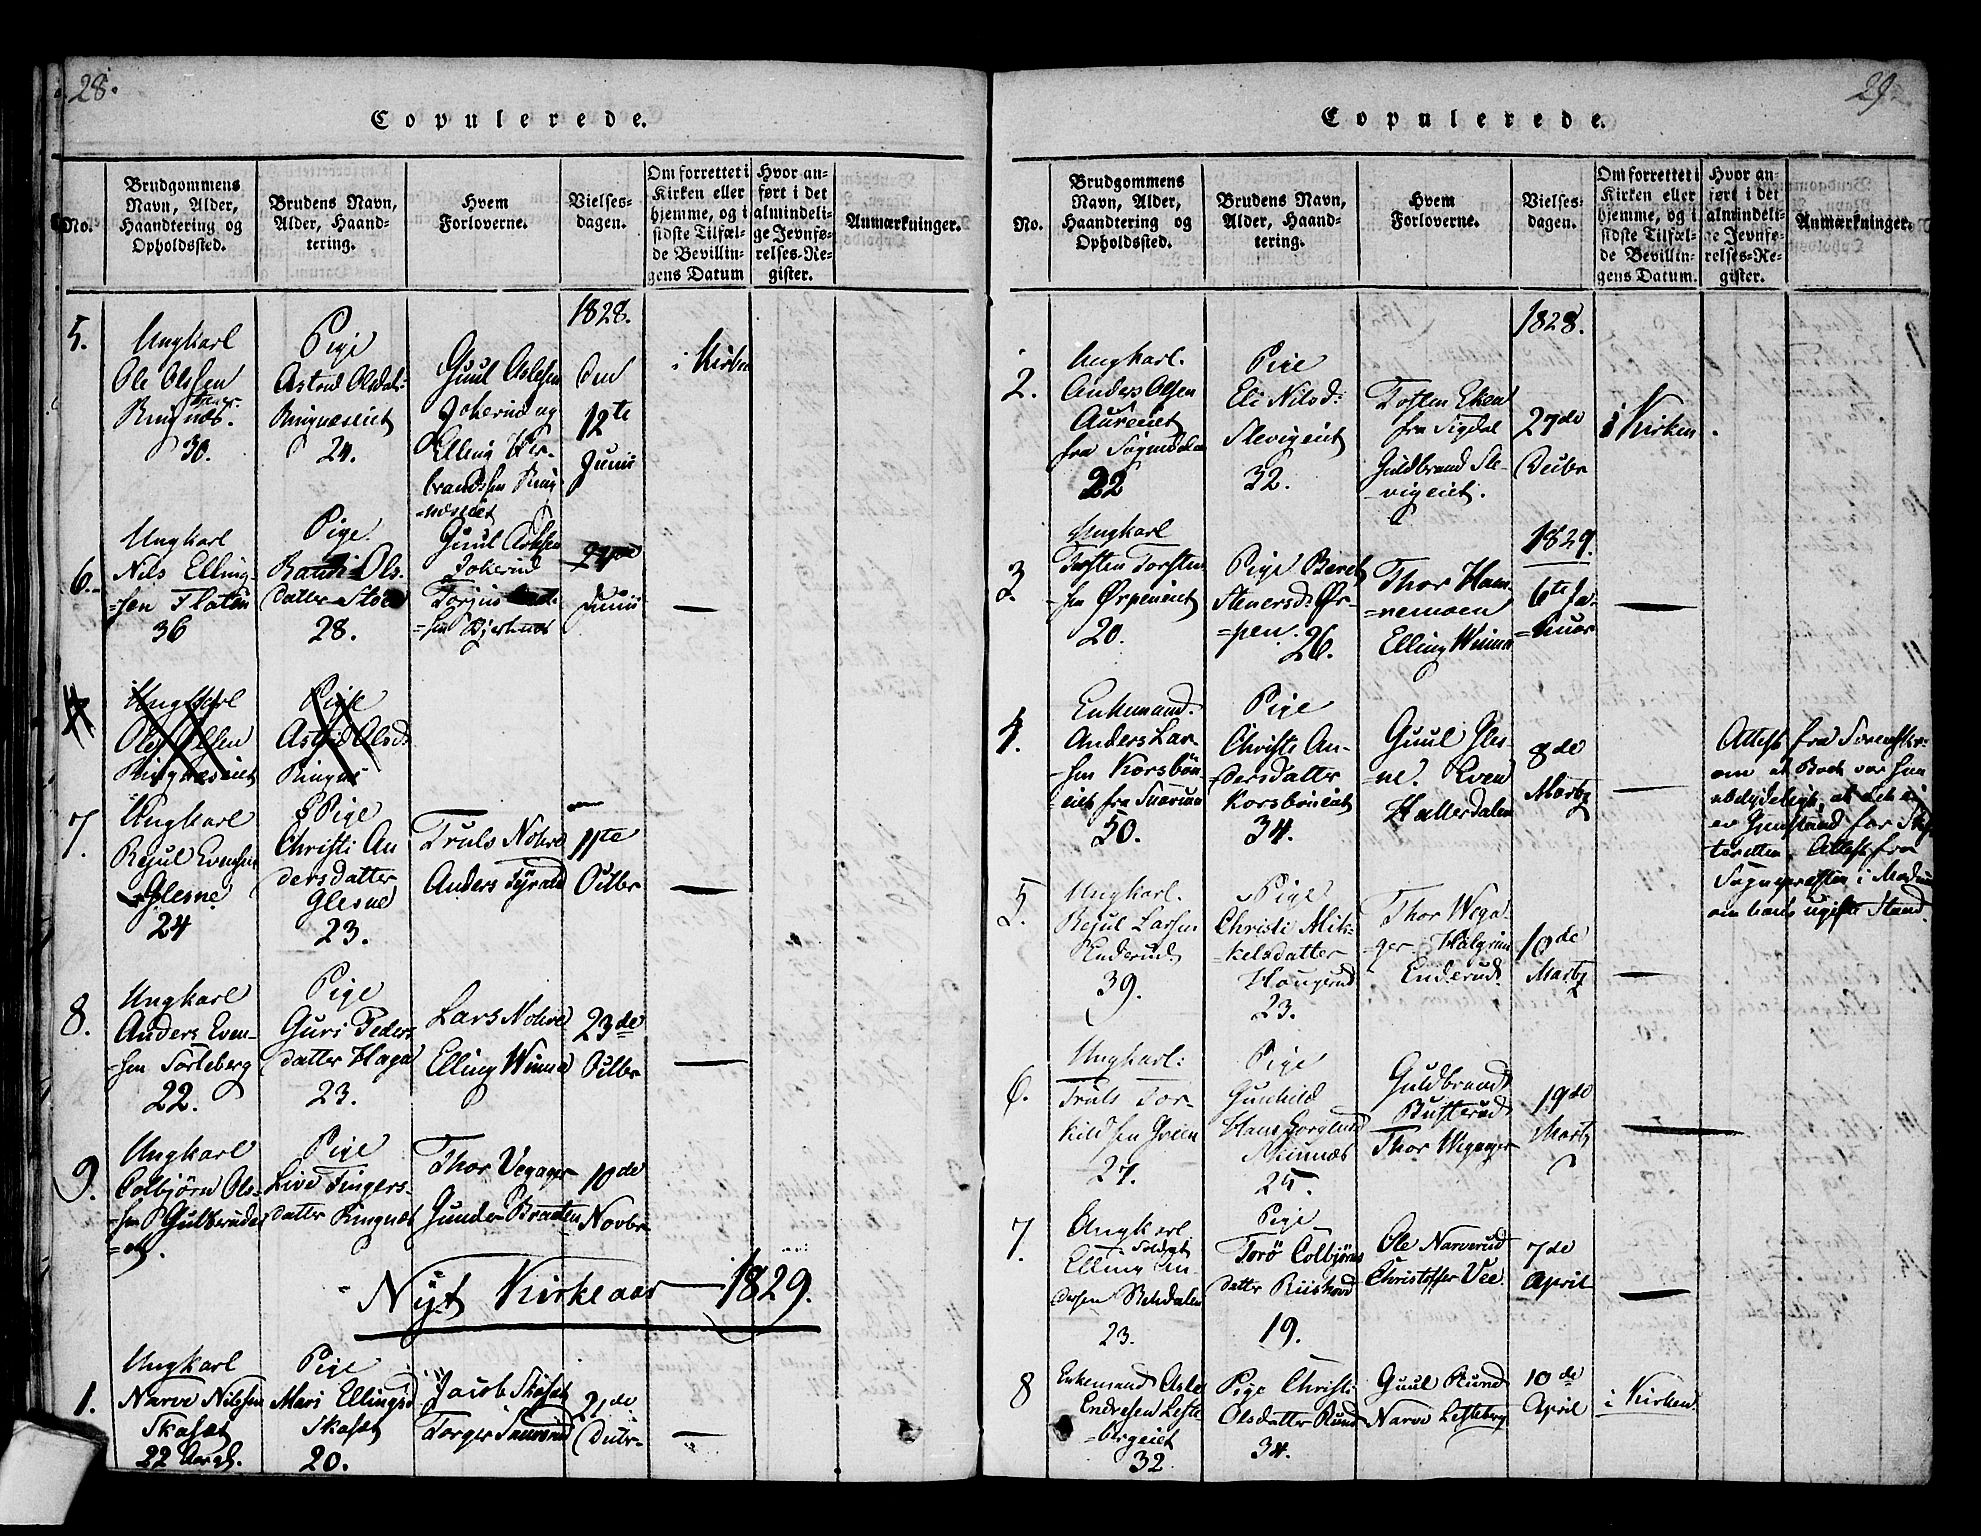 28.
Copulerede.
No.
Brudgommens
Navn, Alder,
Haandtering og
Opholdssted.
Brudens Navn,
Alder, Haand-
tering.
Hvem
Forloverne.
Vielses-
dagen.
Om forrettet i
Kirken eller
hjemme, og i
sidste Tilfæl-
de Bevillin-
gens Datum
Hvor an-
ført i det
almindeli-
ge Jevnfø-
relses-Re-
gister.
Anmærkninger.
1828.
5.
Ungkarl
Ole Olssen
Ringnæs.
30.
Pige
Astrid Olsdat:
Ringnæseiet
24.
Guul Oslesen
Jokerud og
Elling
brandssen Ring-
=næseiet
den
12te
Junii
i Kirken
6.
Ungkarl
Nils Elling-
=sen Floten
36
Pige
Randi Ols-
datter
28.
Guul
Jokerud
Torjus
=sen
Junii
7
Ungkarl
Ole Olssen
Ringnæseiet
Pige
Astrid Olsd:
Ringnæs
7.
Ungkarl
Rejul Evensen
Glesne
24
Pige
Christi An
dersdatter
Glesne
23.
Truls Nohre
Anders
11te
Octbr
8.
Ungkarl
Anders Even-
=sen Sorteberg
22.
Pige
Guri Peders
datter Haga
23.
Lars Nohre
Elling Winna
23de
Octbr
9.
Ungkarl
Colbjörn Ols-
=sen Gulberuds
=ei.
Pige
Live Fingers-
datter Ringnæs
Thor Vegager
Gunder Braaten
10de
Novbr
Nÿt Kirkeaar 1829.
1.
Ungkarl
Narve Nilssen
Skasæt
22 Aar gl.
Pige
Mari Ellingsd
Skasæt
20.
Jacob Skasæt
Torger
21de
Octbr.
29
Copulerede.
No.
Brudgommens
Navn, Alder,
Haandtering og
Opholdssted.
Brudens Navn,
Alder, Haand-
tering.
Hvem
Forloverne.
Vielses-
dagen.
Om forrettet i
Kirken eller
hjemme, og i
sidste Tilfæl-
de Bevillin-
gens Datum.
Hvor an-
ført i det
almindeli-
ge Jevnfø-
relses-Re-
gister.
Anmærkninger.
1828.
2.
Ungkarl.
Anders Olsen
Aureeiet
fra Sognedalen
22
Pige
Eli Nilsd:
Slevigeiet
32.
Tosten Eken
fra Sigdal
Guldbrand Sle-
vigeiet.
27de
Decbr
i Kirken
1829.
3.
Ungkarl
Torsten Torsten
=sen Ørpeneiet
20.
Pige Beret
Stenersd: Ør-
=pen. 26.
Thor Ham-
=remoen
Elling Winna
6te Ja-
=nuar
4.
Enkemand.
Anders Lar-
=sen Korsbön-
eiet fra Snarum
50.
Pige
Christi An-
=dersdatter
Korsböneiet
34.
Guul Gles-
ne. Even
Hallerdalen
8de
Martz
Attest fra
om at Boet var saa
ubetydeligt, at det ei
er Gjenstand for Skif-
teretten. Attest fra
Sognepræsten i Modum
om hans ugifte Stand.
5.
Ungkarl.
Rejul Larsen
Enderud
39.
Pige
Christi Mik-
=kelsdatter
Haugerud
23.
Thor Wega-
ger. Halgrim
Enderud.
10de
Martz
6.
Ungkarl:
Truls Tor-
kildsen Green
27.
Pige
Gunhild
25.
Guldbrand
Busterud
Thor Wegager
19de
Martz
7.
Ungkarl
Soldat
Elling An-
dersen
23.
Pige
Torö Colbjörns
datter Riishovd
19.
Ole Narverud
Christoffer Vee
7de
April
8
Enkemand Asle
Endresen Leste-
=bergeiet
32
Pige Christi
Olsdatter Rund
34.
Guul Rund
Narve Lesteberg
10de
April
i Kirken